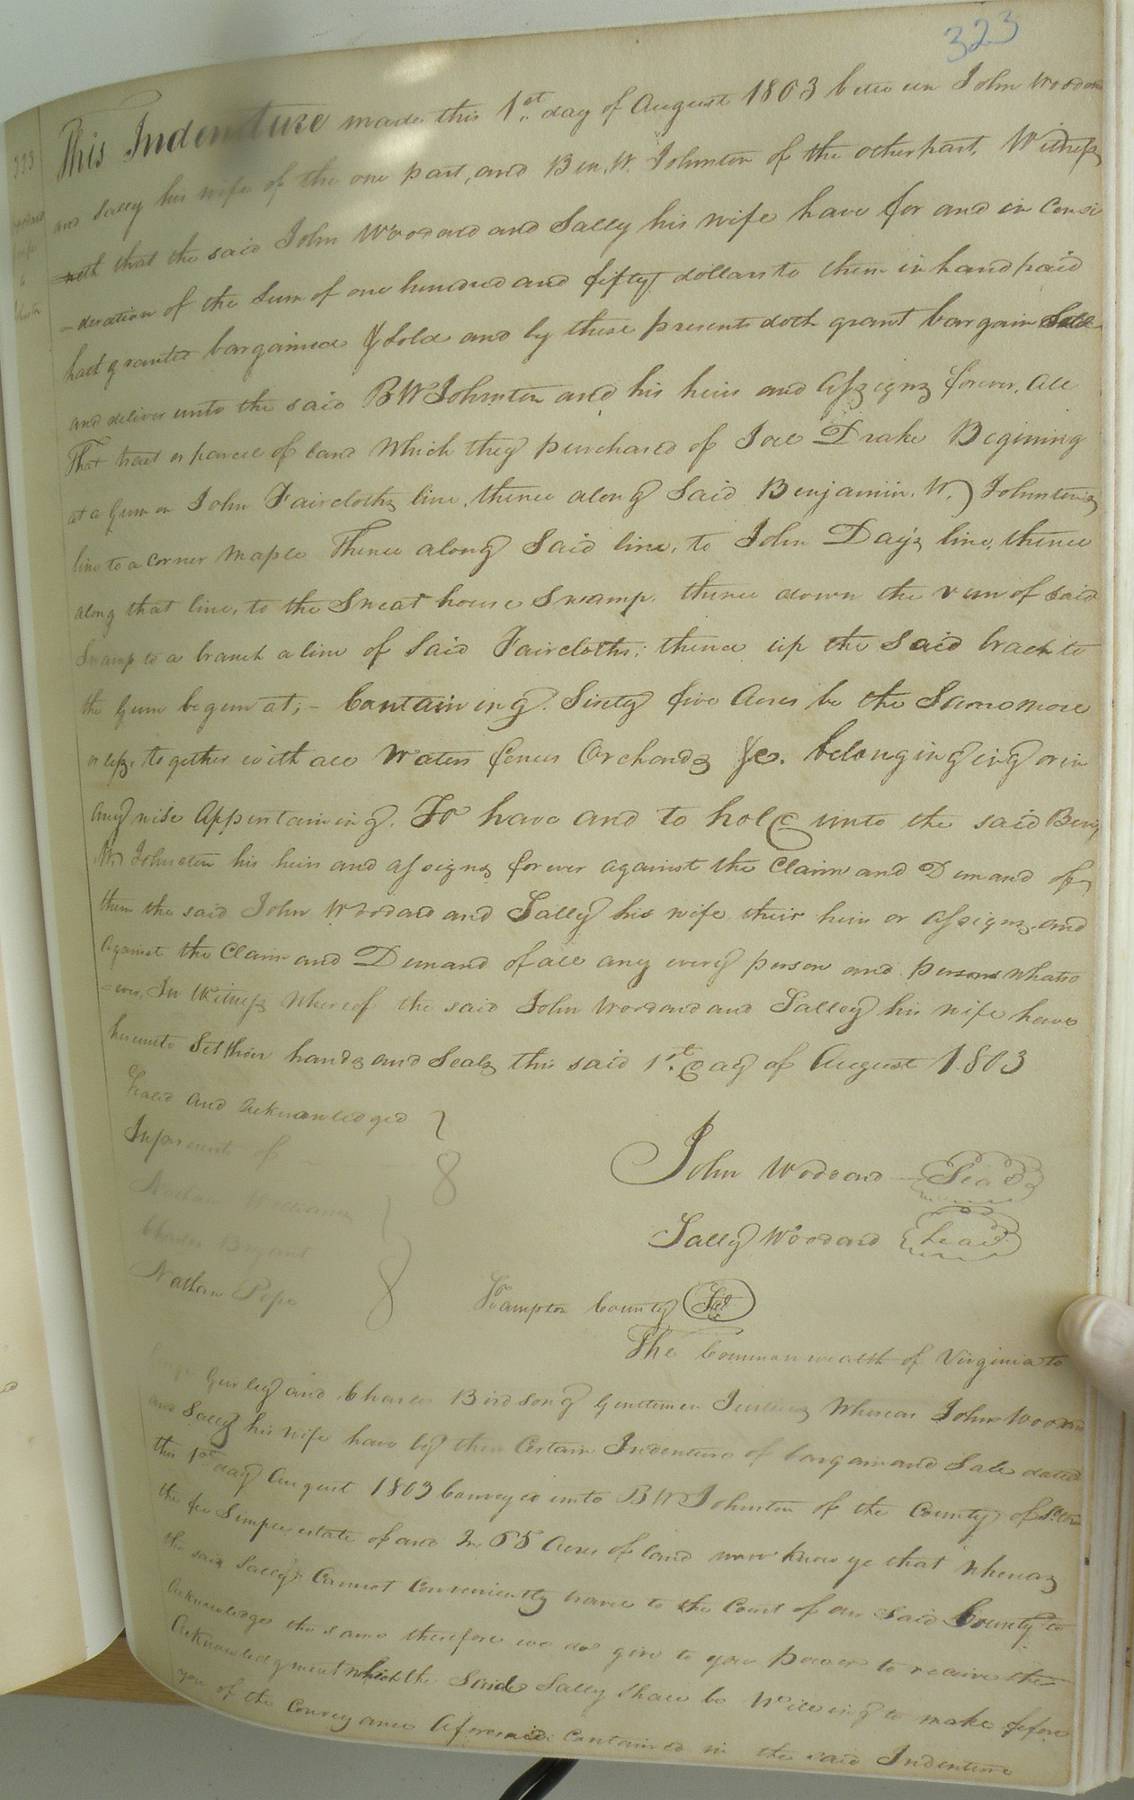 323
This Indenture made this 1st day of August 1803 between John Woodard
and Sally his wife of the one part, and Ben. W. Johnston of the other part, Witness
=eth that the said John Woodard and Sally his wife have for and in Consi
=deration of the Sum of one hundred and fifty dollars to them in hand paid
hath granted bargained & sold and by these presents doth grant bargain Sell
and deliver unto the said B W Johnston and his heirs and assigns forever, all
That tract or parcel of land Which they purchased of Joel Drake Begining
at a Gum on John Faircloths line, thence along Said Benjamin. W. Johnston's
line to a corner maple Thence along Said line, to John Day's line, thence
along that line, to the Sweat house Swamp, thence down the run of said
Swamp to a branch a line of Said Faircloths; thence up the Said brach to
the Gum begun at; - Containing Sixty five Acres be the Same more
or less, together with all Waters fences Orchards &c. belonging ing or in
any wise Appertaining. To have and to hold unto the said Benj
W. Johnston his heirs and assigns forever against the Claim and Demand of
them the said John Woodard and Sally his wife their heirs or assigns, and
against the Claim and Demand of all any every person and persons whatso
=ever, In Witness Whereof the said John Woodard and Salley his wife have
hereunto Set their hands and Seals this said 1st day of August 1803
Sealed and Acknowledged
In presence of
John Woodard Seal
Nathan Williams
Sally Woodard Seal
Charles Bryant
Nathan Pope
Hampton County Sct
The Commonwealth of Virginia to
Gurley and Charles Birdsong Gentlemen Justices Whereas John Woodard
and Sally his wife have by their Certain Indenture of bargain and Sale dated
this 1st day August 1803 Conveyed unto B W Johnston of the County of
the fee Simple estate of and In 65 Acres of land now know ye that whereas
the said Sally Cannot Conveniently travel to the Court of our Said County to
Acknowledge the same therefore we do give to you power to receive the
Acknowledgment which the Said Sally shall be Willing to make before
you of the Conveyance Aforesaid Contained in the said Indenture